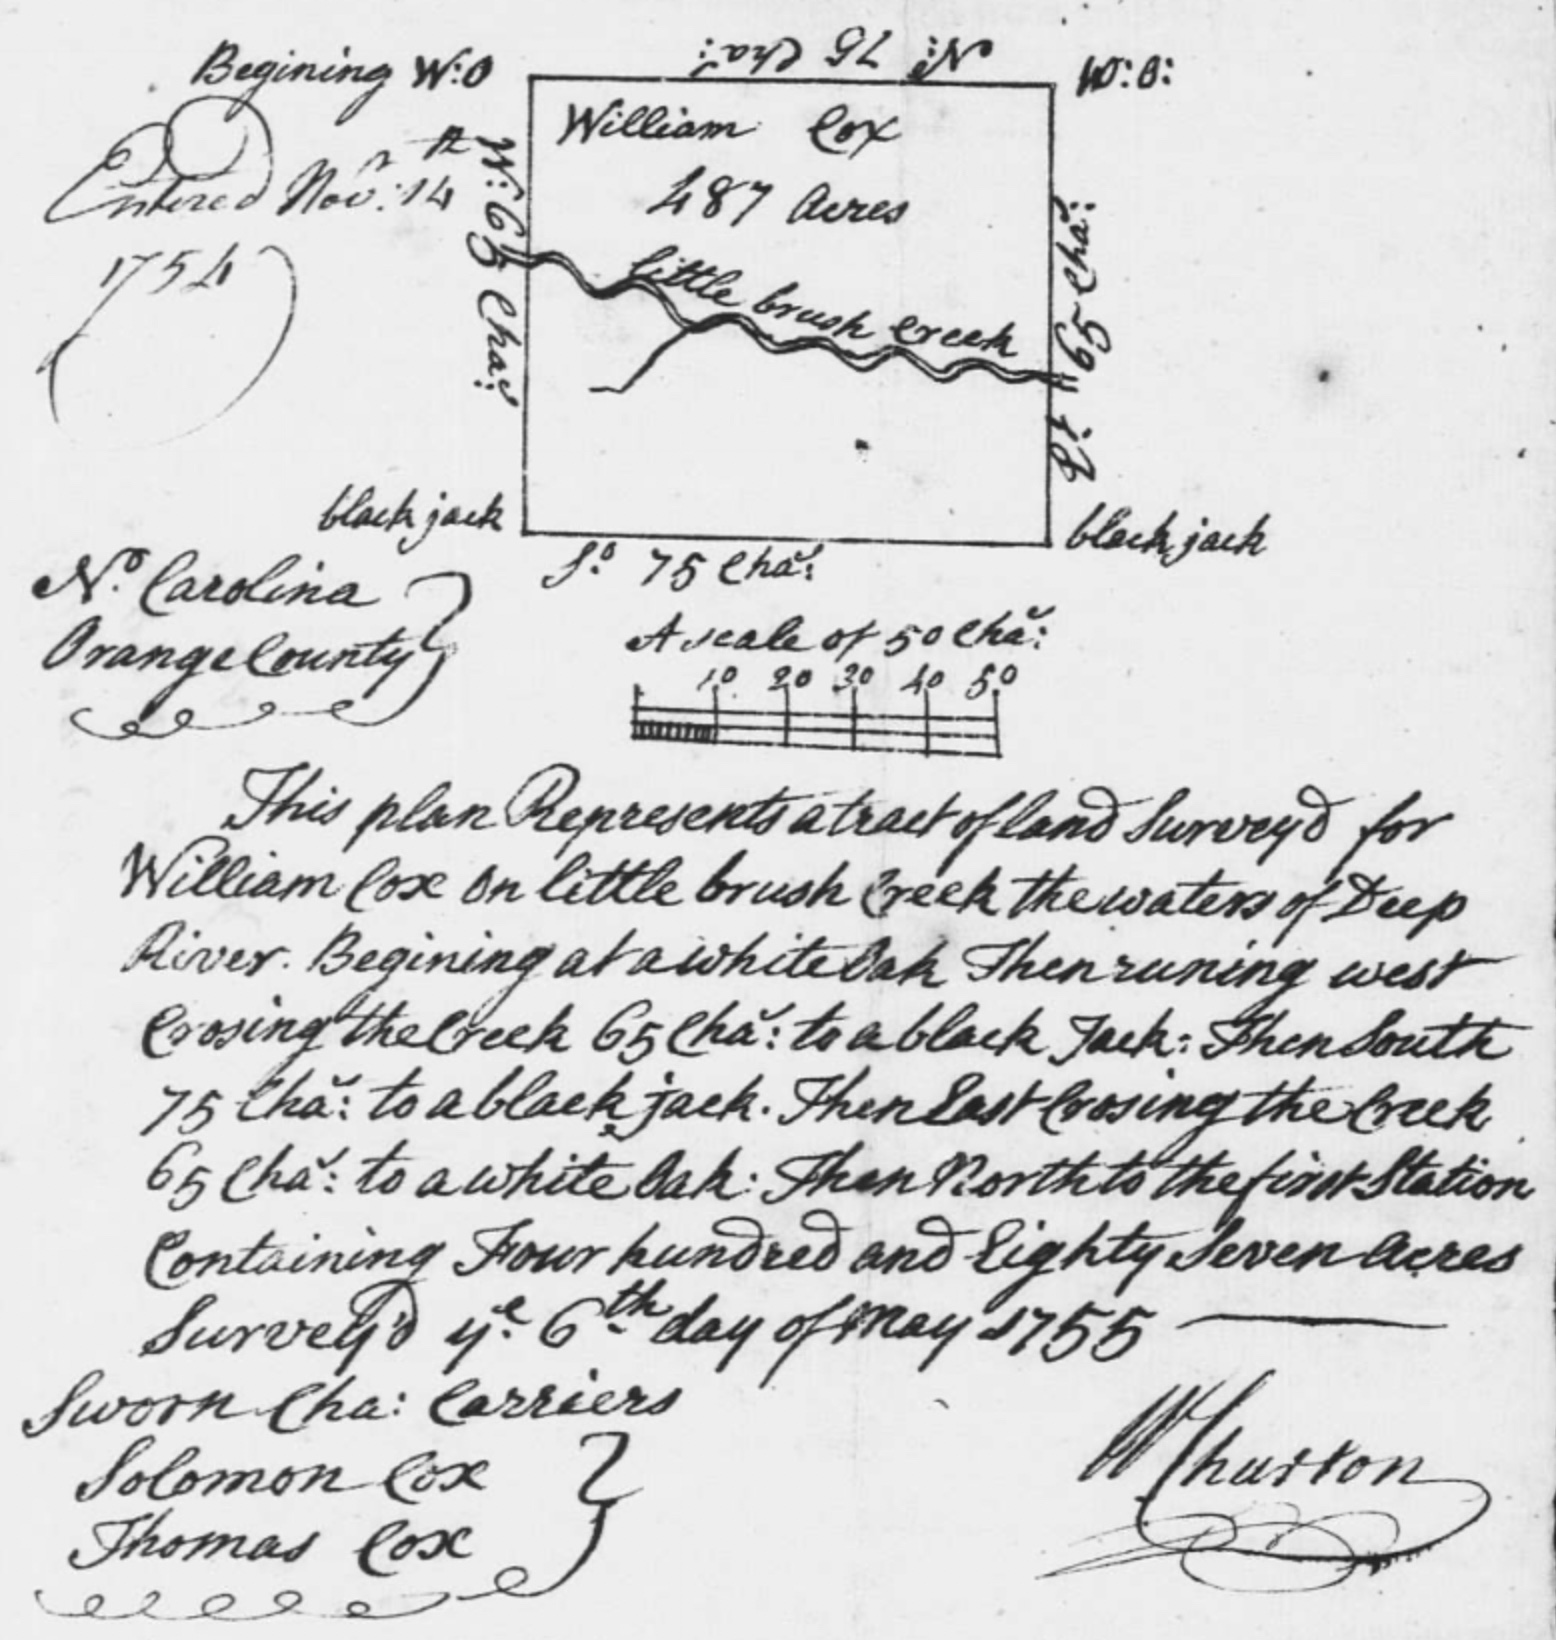 N:o 75 Cha.s:
Begining W:O
W:O:
William Cox
487 Acres
Entered Nov.r: 14th
1754
W: 65 Cha.s:
little brush Creek
E:t 65 Cha.s:
black jack
black jack
S.o: 75 Cha.s:
N.o Carolina
Orange County
A scale of 50 Cha.s:
10 20 30 40 50
This plan Represents a tract of land Survey'd for
William Cox On little brush Creek the waters of Deep
River. Begining at a white Oak Then runing west
Crosing the Creek 65 Cha.s: to a black Jack: Then South
75 Cha.s: to a black jack. Then East Crosing the Creek
65 Cha.s: to a white Oak: Then North to the first Station
Containing Four hundred and Eighty Seven Acres
Survey'd y.e 6.th day of May 1755
Sworn Cha: Carriers
Solomon Cox
Thomas Cox
W Churton